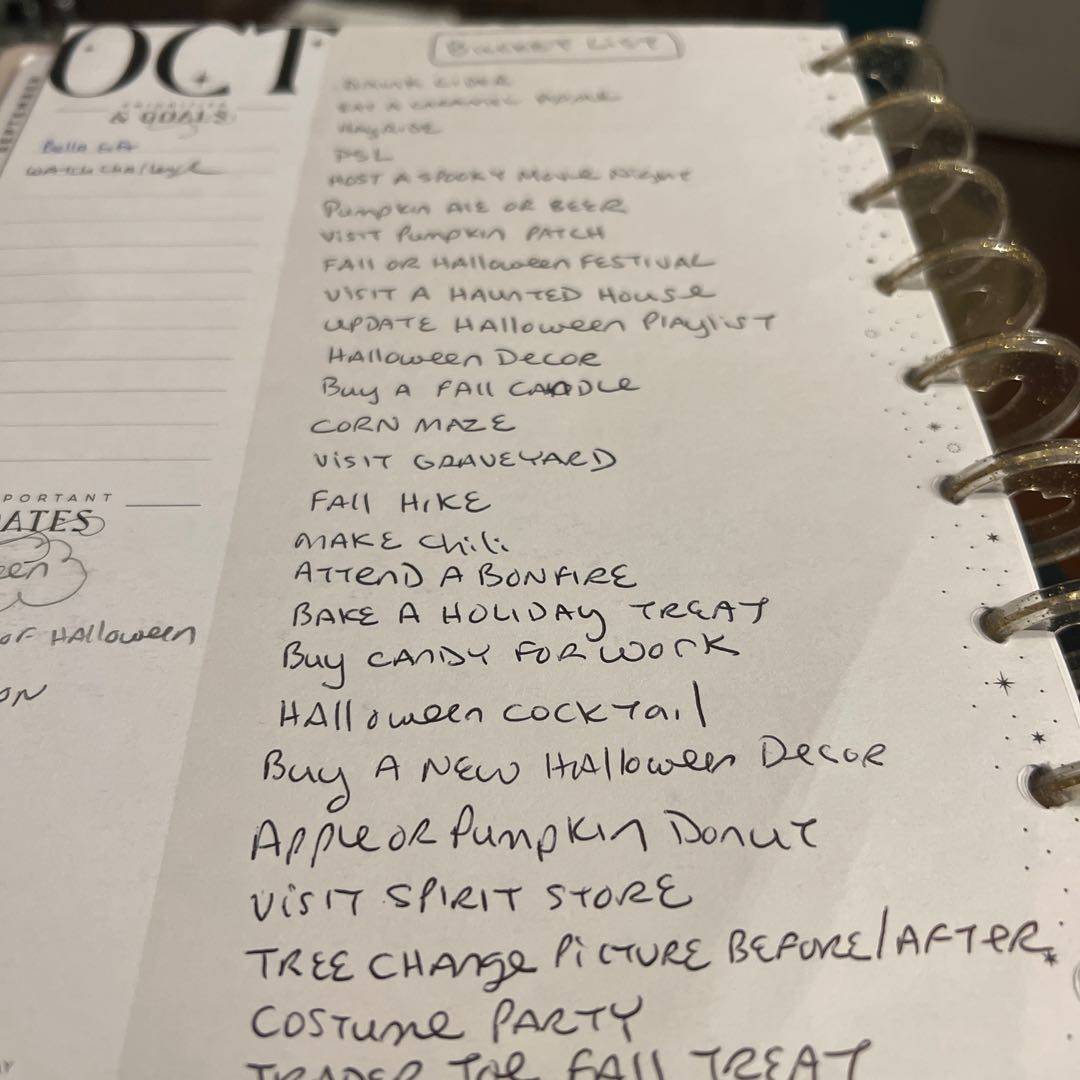 OCT
& GOALS
WATCH Challenge
PORTANT
ATES
een
OF HAlloween
ON
BUCKET LIST
DRINK CIDER
EAT A CARAMEL
HAYRIDE
PSL
HOST A SPOOKY MOVIE NIGHT
Pumpkin ALE OR BEER
VISIT Pumpkin PATCH
FAll OR HAlloween FESTIVAL
VISIT A HAUNTED House
UPDATE HAlloween PlAylIST
HAlloween DECOR
Buy A FAll CANDLE
CORN MAZE
VISIT GRAVEYARD
FAll HIKE
MAKE Chili
ATTEND A BONFIRE
BAKE A HOLIDAY TREAT
Buy CANDY FOR WORK
HAlloween COCKTAIl
Buy A NEW HAlloween DECOR
APPLE OR PumpKIN DONUT
VISIT SPIRIT STORE
TREE CHANGE PICTURE BEFORE/AFTER
COSTUME PARTY
TRADER JOE FAll TREAT